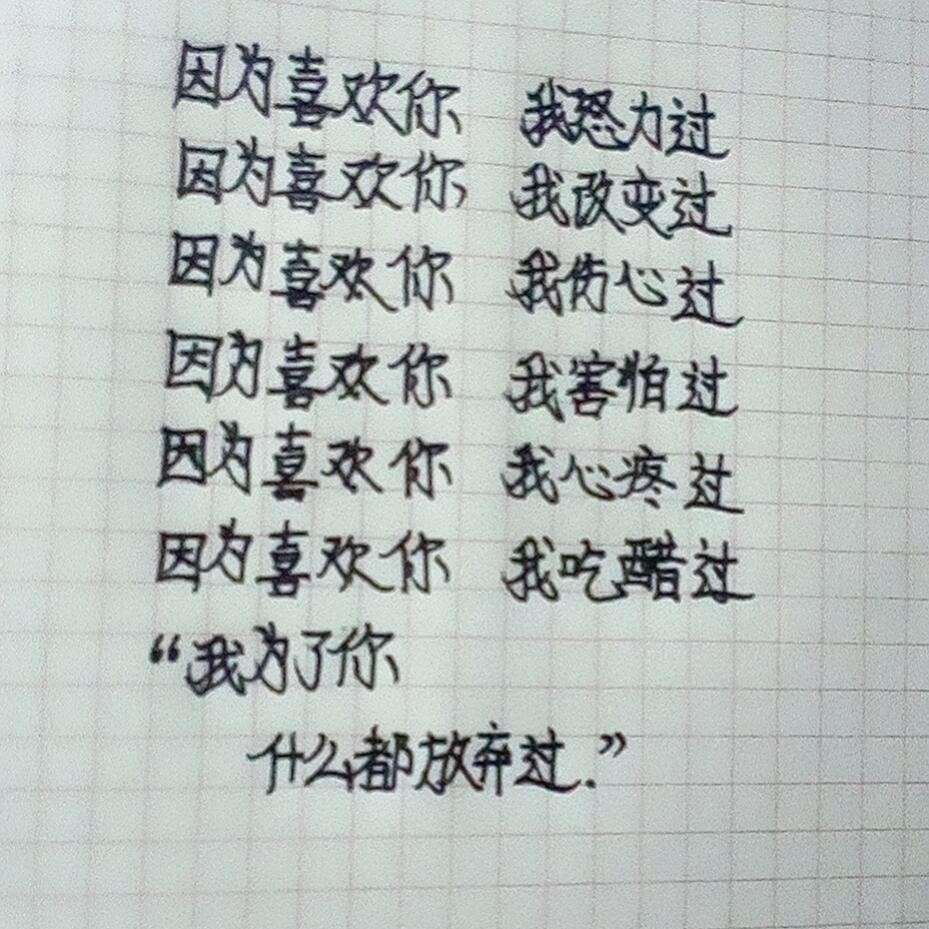 因为喜欢你 我努力过
因为喜欢你 我改变过
因为喜欢你 我伤心过
因为喜欢你 我害怕过
因为喜欢你 我心疼过
因为喜欢你 我吃醋过
“我为了你
什么都放弃过.”